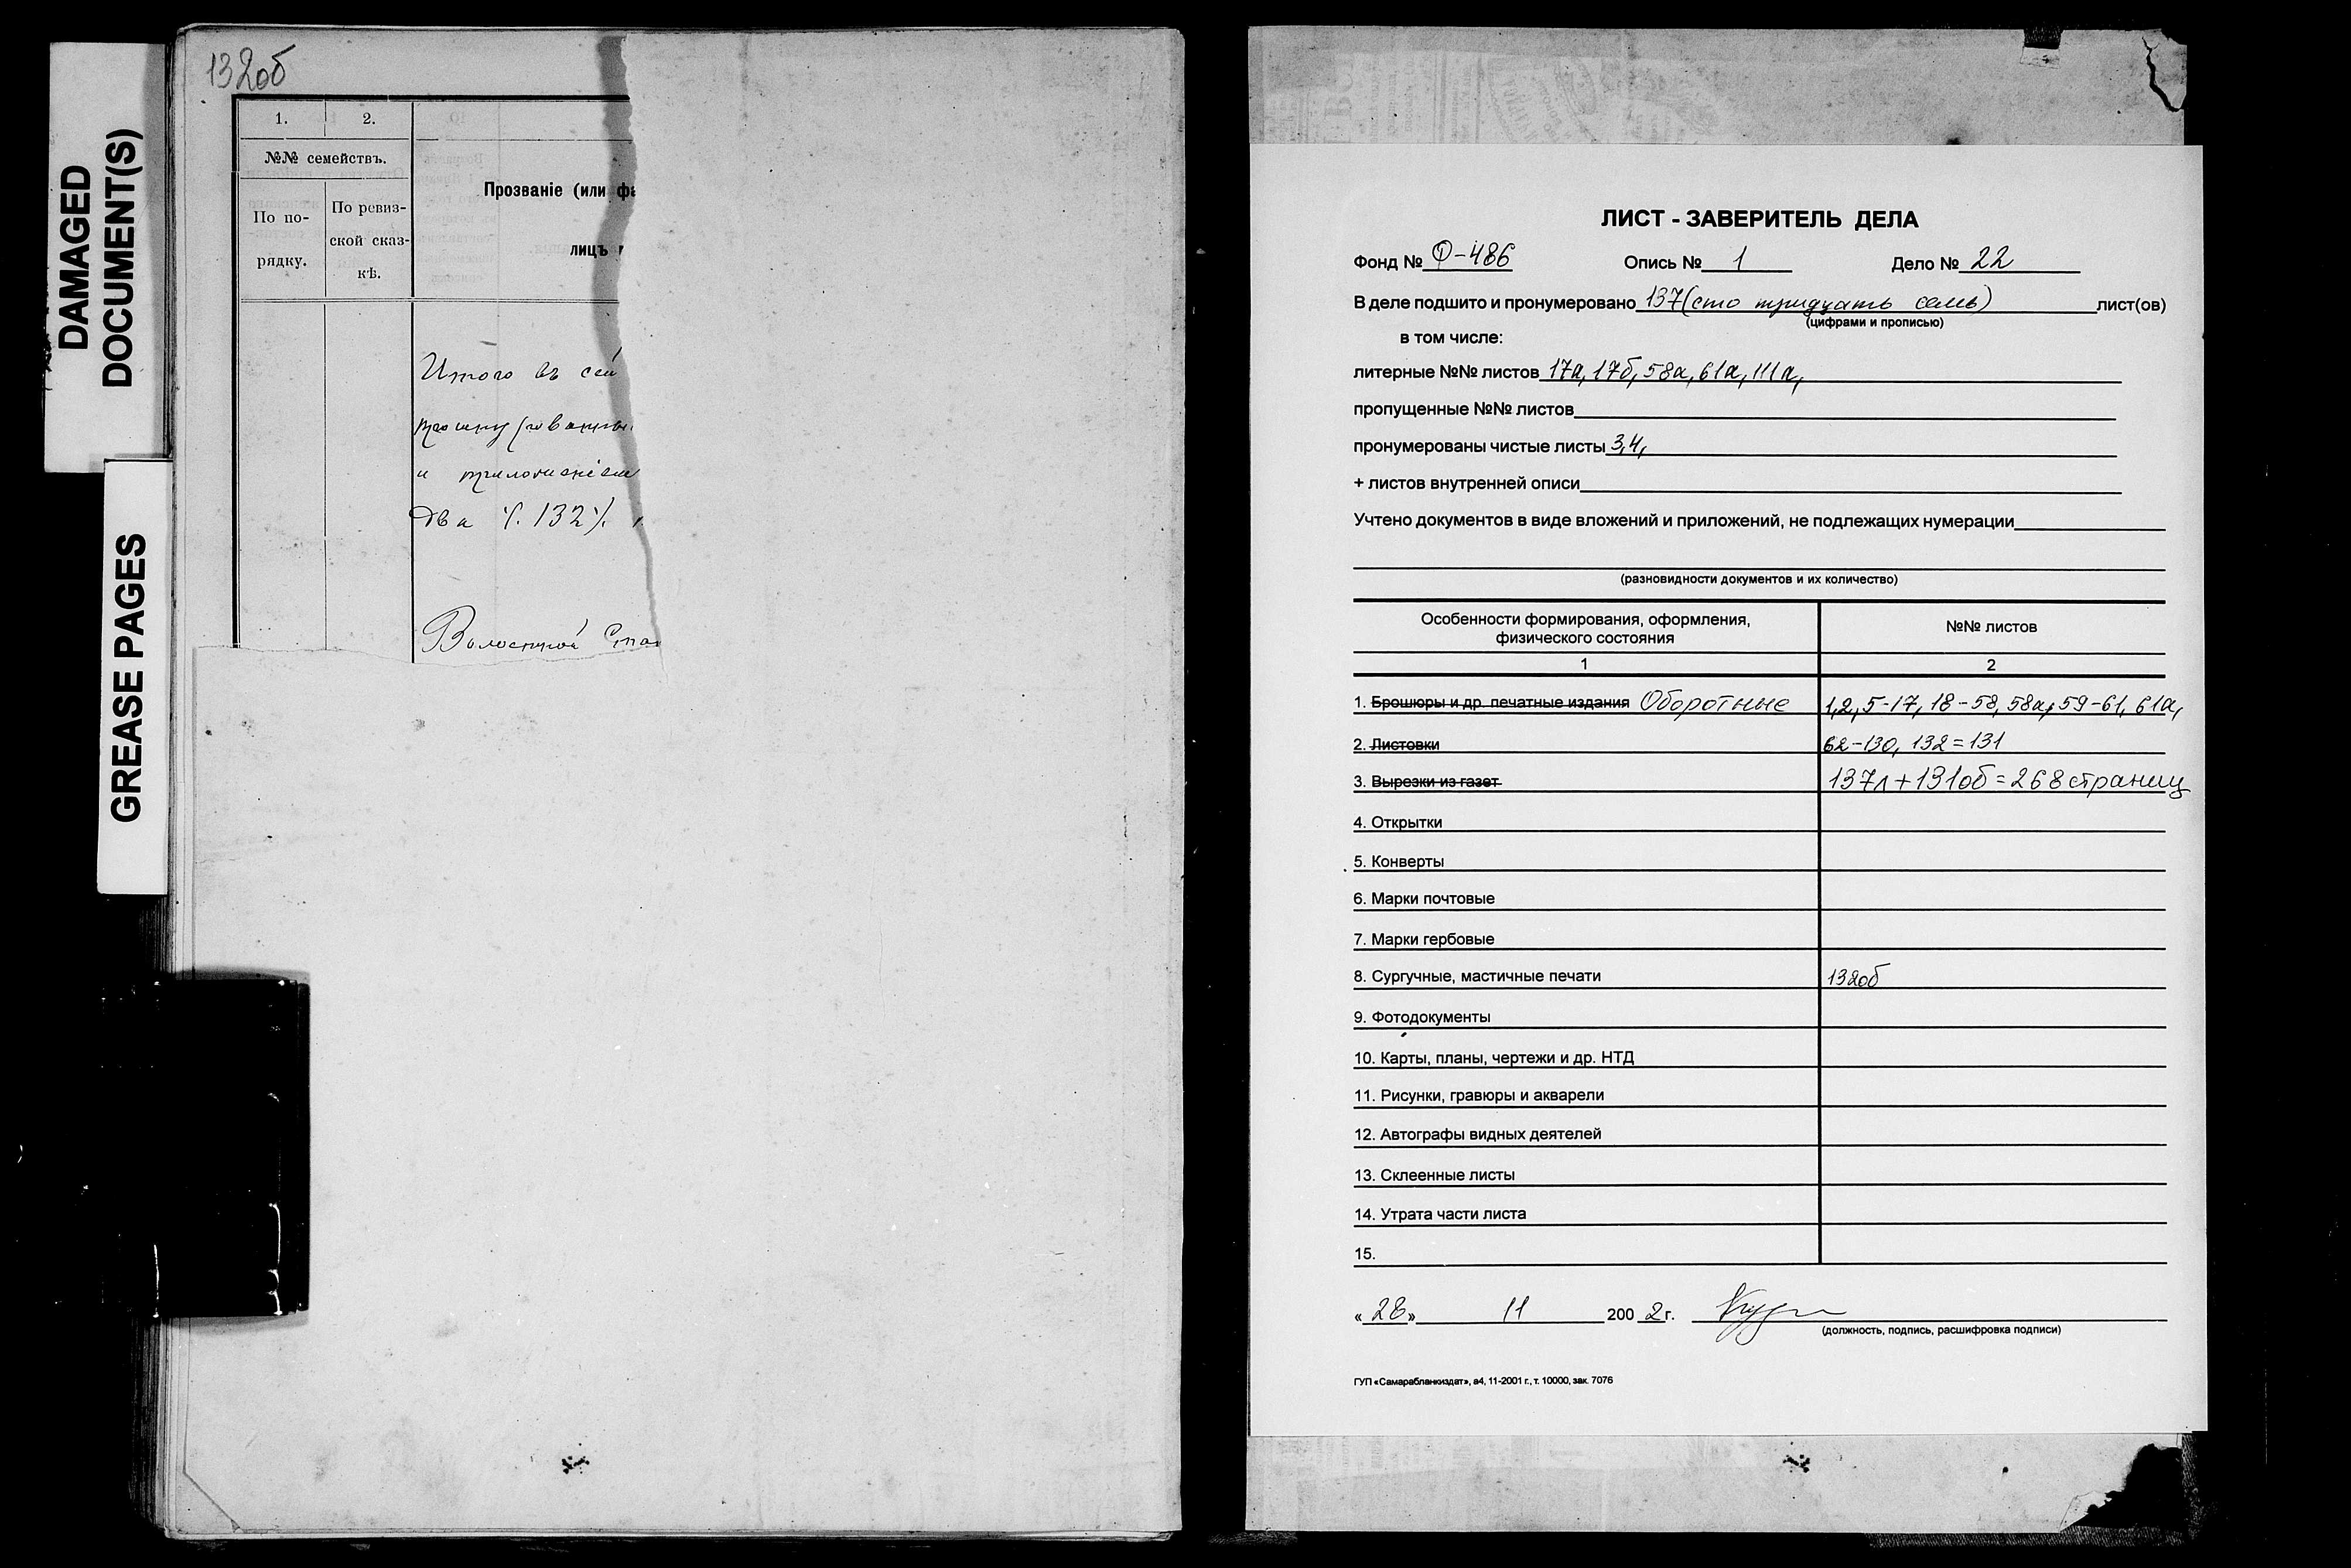 DAMAGED
DOCUMENT(S)
GREASE PAGES
132об
1. 2.
№№ семействъ.
По по-
рядку.
По ревиз-
ской сказ-
кѣ.
Прозваніе (или фа
лицъ
Итого въ сей
и приложеніем
два %. 132 %.
Волостной Ста
ЛИСТ - ЗАВЕРИТЕЛЬ ДЕЛА
Фонд № Ф-486 Опись № 1 Дело № 22
В деле подшито и пронумеровано 137 (сто тридцать семь) лист(ов)
(цифрами и прописью)
в том числе:
литерные №№ листов 17а, 17б, 58а, 61а, 111а,
пропущенные №№ листов
пронумерованы чистые листы 3,4,
+ листов внутренней описи
Учтено документов в виде вложений и приложений, не подлежащих нумерации
(разновидности документов и их количество)
Особенности формирования, оформления,
физического состояния
№№ листов
1 2
1. Брошюры и др. печатные издания Оборотные 1,2, 5-17, 18-58, 58а, 59-61, 61а,
2. Листовки 62-130, 132=131
3. Вырезки из газет 137л+131об=268 страниц
4. Открытки
5. Конверты
6. Марки почтовые
7. Марки гербовые
8. Сургучные, мастичные печати 132об
9. Фотодокументы
10. Карты, планы, чертежи и др. НТД
11. Рисунки, гравюры и акварели
12. Автографы видных деятелей
13. Склеенные листы
14. Утрата части листа
15.
«28» 11 2002 г.
(должность, подпись, расшифровка подписи)
ГУП «Самарабланкиздат», а4, 11-2001 г., т. 10000, зак. 7076